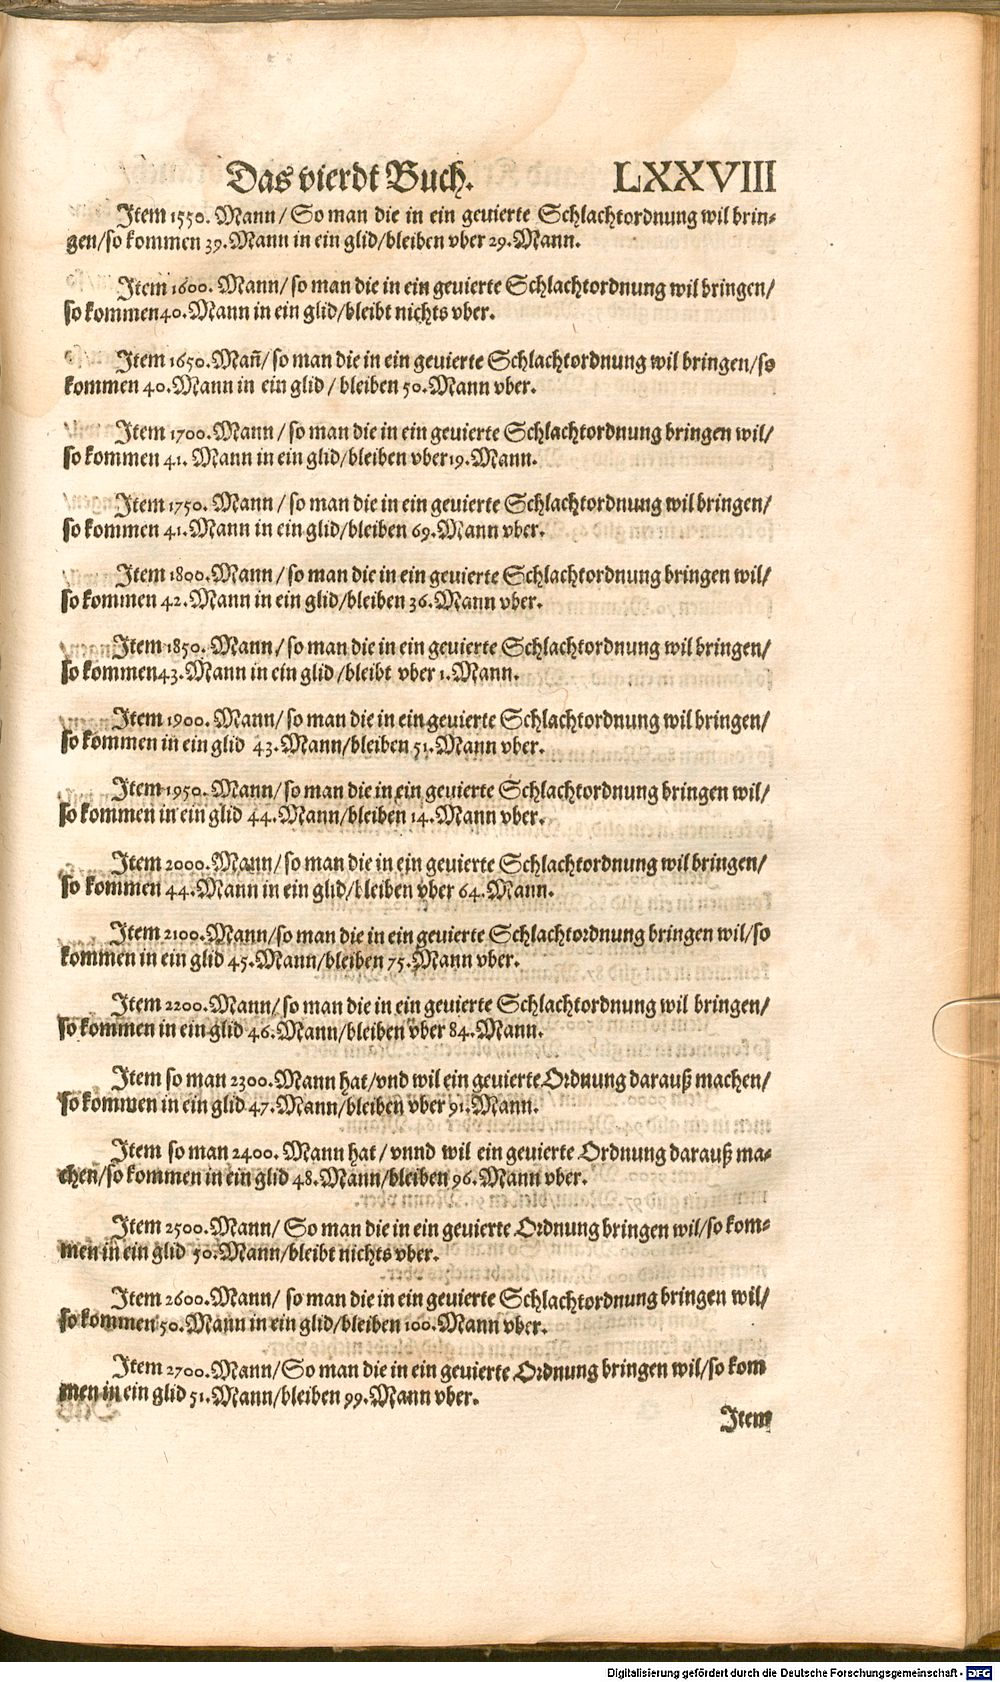 Das vierdt Buch. LXXVIII
Item 1550. Mann/ So man die in ein geuierte Schlachtordnung wil brin-
gen/so kommen 39. Mann in ein glid/bleiben vber 29. Mann.
Item 1600. Mann/ so man die in ein geuierte Schlachtordnung wil bringen/
so kommen 40. Mann in ein glid/bleibt nichts vber.
Item 1650. Mañ/ so man die in ein geuierte Schlachtordnung wil bringen/so
kommen 40. Mann in ein glid / bleiben 50. Mann vber.
Item 1700. Mann / so man die in ein geuierte Schlachtordnung bringen wil/
so kommen 41. Mann in ein glid/bleiben vber 19. Mann.
Item 1750. Mann / so man die in ein geuierte Schlachtordnung wil bringen/
so kommen 41. Mann in ein glid/bleiben 69. Mann vber.
Item 1800. Mann / so man die in ein geuierte Schlachtordnung bringen wil/
so kommen 42. Mann in ein glid/bleiben 36. Mann vber.
Item 1850. Mann/ so man die in ein geuierte Schlachtordnung wil bringen/
so kommen 43. Mann in ein glid /bleibt vber 1. Mann.
Item 1900. Mann/ so man die in ein geuierte Schlachtordnung wil bringen/
so kommen in ein glid 43. Mann/bleiben 51. Mann vber.
Item 1950. Mann/ so man die in ein geuierte Schlachtordnung bringen wil/
so kommen in ein glid 44. Mann/bleiben 14. Mann vber.
Item 2000. Mann/ so man die in ein geuierte Schlachtordnung wil bringen/
so kommen 44. Mann in ein glid/bleiben vber 64. Mann.
Item 2100. Mann/so man die in ein geuierte Schlachtordnung bringen wil/so
kommen in ein glid 45. Mann/bleiben 75. Mann vber.
Item 2200. Mann/ so man die in ein geuierte Schlachtordnung wil bringen/
so kommen in ein glid 46. Mann/bleiben vber 84. Mann.
Item so man 2300. Mann hat/vnd wil ein geuierte Ordnung darauß machen/
so kommen in ein glid 47. Mann/bleiben vber 91. Mann.
Item so man 2400. Mann hat / vnnd wil ein geuierte Ordnung darauß ma-
chen/so kommen in ein glid 48. Mann/bleiben 96. Mann vber.
Item 2500. Mann/ So man die in ein geuierte Ordnung bringen wil/so kom-
men in ein glid 50. Mann/bleibt nichts vber.
Item 2600. Mann/ so man die in ein geuierte Schlachtordnung bringen wil/
so kommen 50. Mann in ein glid/bleiben 100. Mann vber.
Item 2700. Mann/So man die in ein geuierte Ordnung bringen wil/so kom
men in ein glid 51. Mann/bleiben 99. Mann vber.
Item
Digitalisierung gefördert durch die Deutsche Forschungsgemeinschaft - DFG